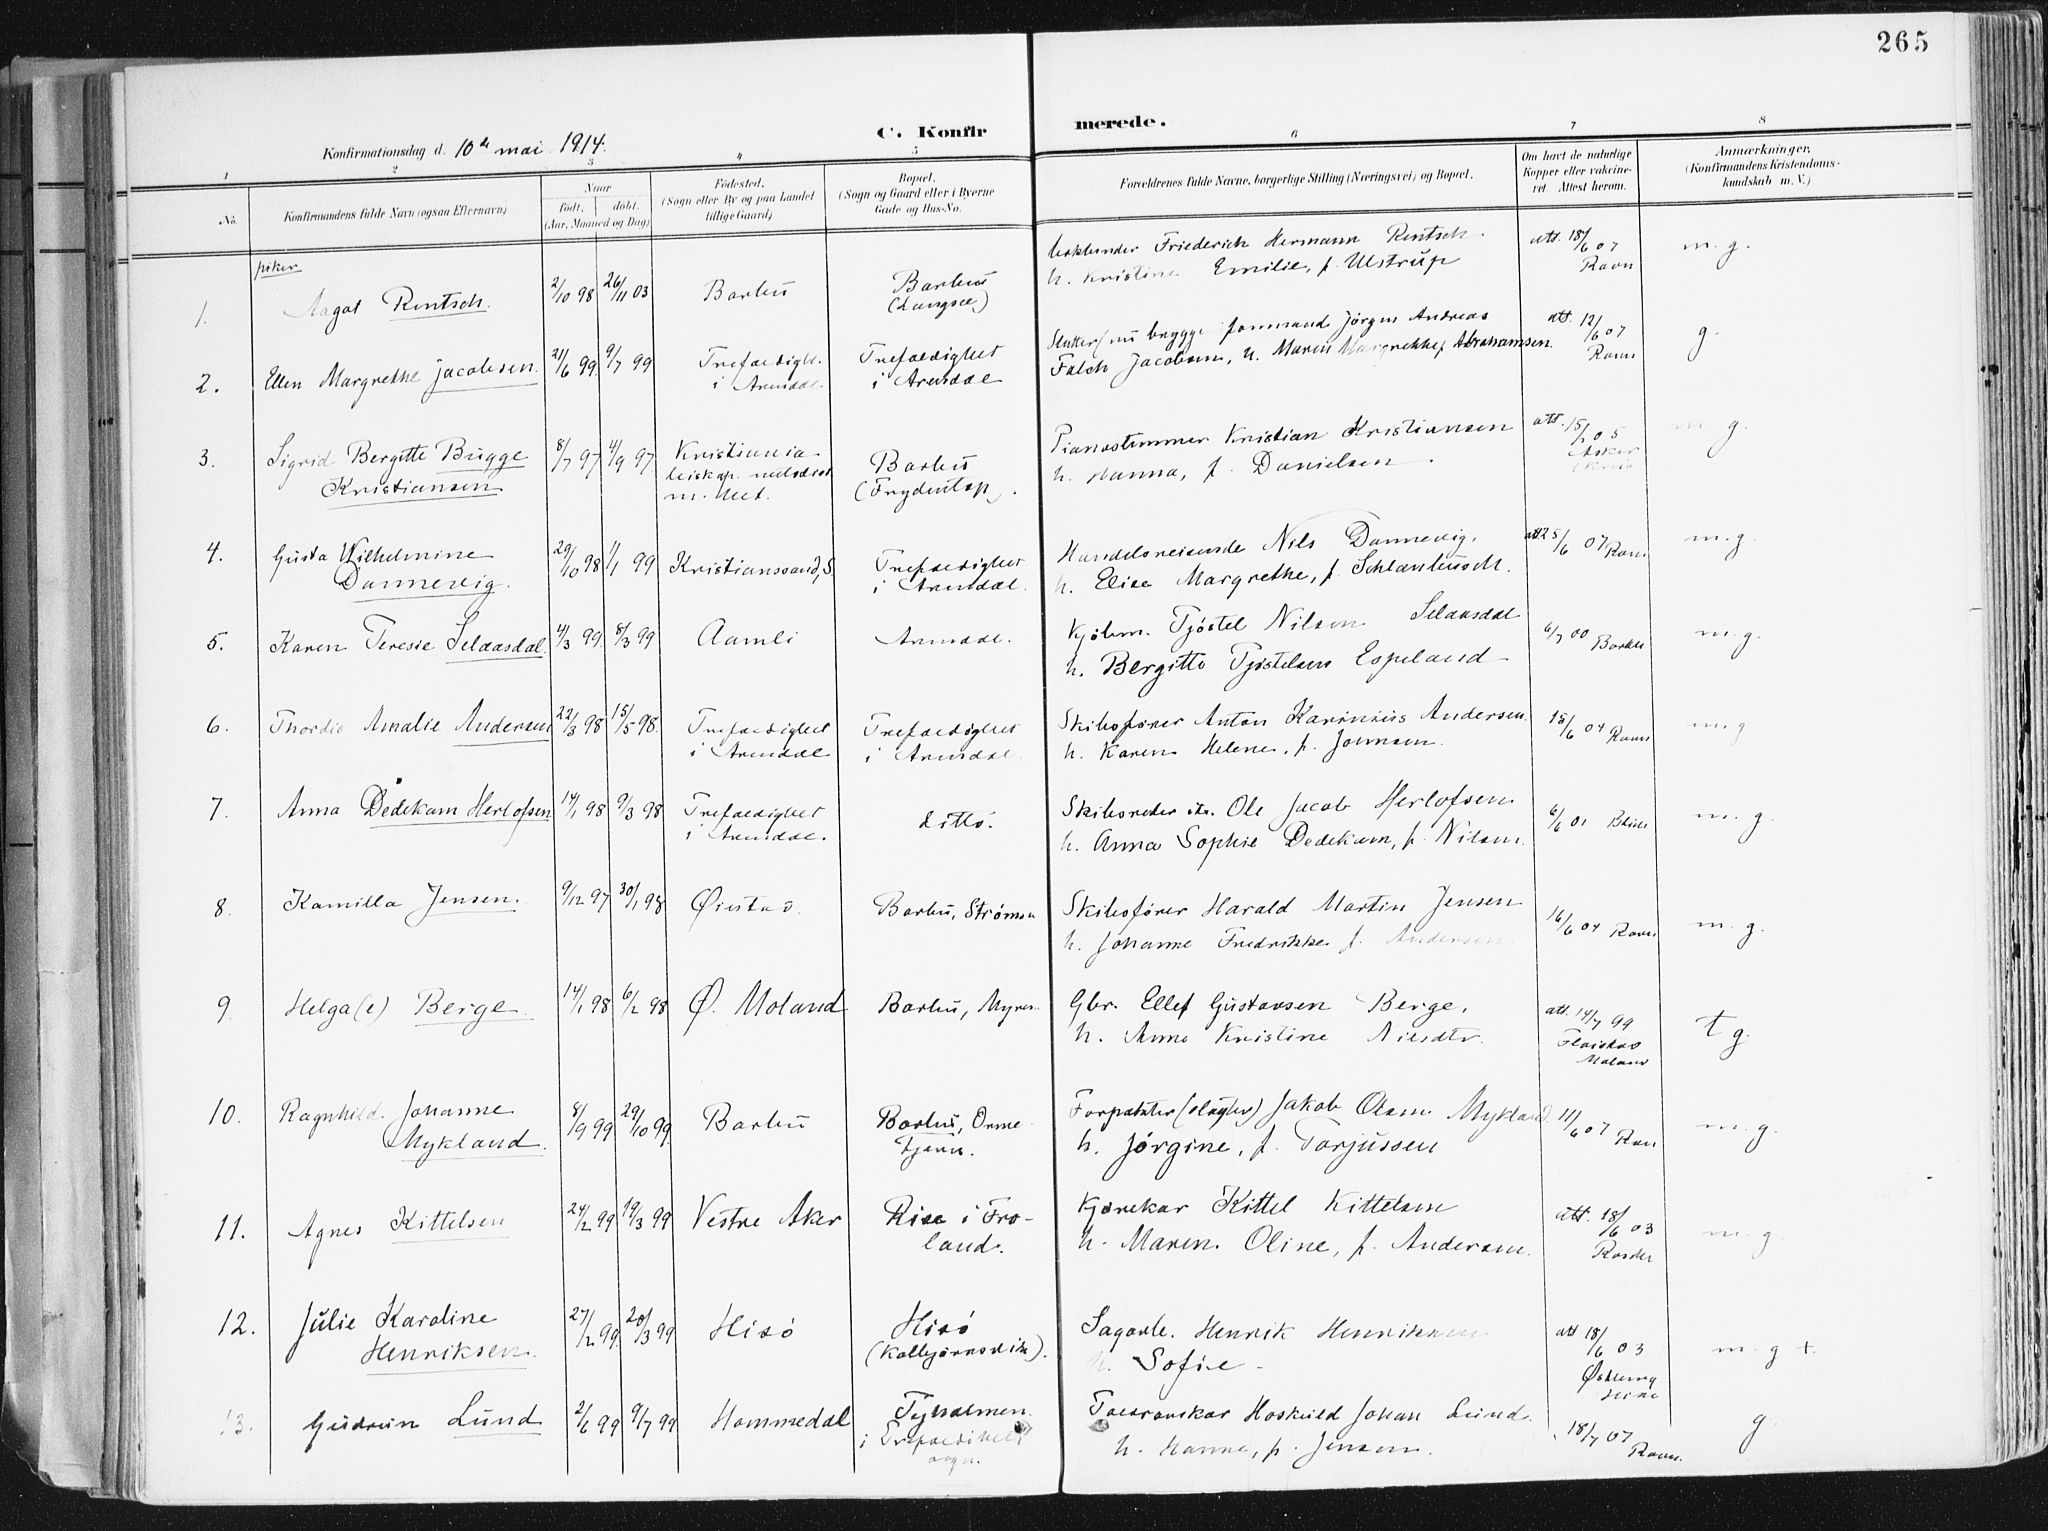 265
C. Konfirmerede.
Konfirmationsdag d. 10de mai 1914.
1 2 3 4 5 6 7 8
No.
Konfirmandens fulde Navn (ogsaa Efternavn)
Naar
født, døbt.
(Aar, Maaned og Dag)
Fødested.
(Sogn eller By og paa Landet
tillige Gaard)
Bopæl.
(Sogn og Gaard eller i Byerne
Gade og Hus-No.
Forældrenes fulde Navne, borgerlige Stilling (Næringsvei) og Bopæl.
Om havt de naturlige
Kopper eller vakcine-
ret. Attest herom.
Anmærkninger,
(Konfirmandens Kristendoms-
kundskab m. V.)
piker
1. Aagot Rentsch. 2/10 98 26/11 03 Barbu Barbu
(Langsæ)
Friederich Hermann Rentsch.
h. Kristine Emilie, f. Ulstrup
att. 18/6 07
Ravn
m. g.
2. Ellen Margrethe Jacobsen. 21/6 99 9/7 99 Trefoldigh.
i Arendal
Trefoldighet
i Arendal
(nu brygge formand) Jörgen Andreas
Falch Jacobsen, h. Maren Margrethe, f. Abrahamsen.
att. 12/6 07
Ravn
g.
3. Sigrid Bergitte Bugge
Kristiansen
8/7 97 4/9 97 Kristiania
Barbu
(Frydentop).
Pianostemmer Kristian Kristiansen
h. Hanna, f. Danielsen.
att. 15/
05
Asker
m. g.
4. Gusta Wilhelmine
Dannevig.
29/10 98 1/1 99 Kristianssand, S. Trefoldighet
i Arendal.
Handelsreisende Nils Dannevig,
h. Elise Margrethe, f. Schlanbusch.
att 25/6 07 Ravn
m. g.
5. Karen Teresie Selaasdal. 4/3 99 8/3 99 Aamli Arendal.
Kjöbm. Tjöstel Nilsen Selaasdal
h. Bergitte Tjöstelsen Espeland
6/7 00 Barbu
m. g.
6. Thordis Amalie Andersen 22/3 98 15/5 98. Trefoldighet
i Arendal
Trefoldighet
i Arendal.
Skibsfører Anton Karinius Andersen.
h. Karen Helene, f. Johnsen.
15/6 04 Ravn
m. g.
7. Anna Dedekam Herlofsen 14/1 98 9/3 98 Trefoldighet
i Arendal.
ditto.
Skibsreder Ole Jacob Herlofsen
h. Anna Sophie Dedekam, f. Nilsen.
6/6 01
m. g.
8. Kamilla Jensen. 9/12 97 30/1 98 Øiestad. Barbu, Strömsø
Skibsfører Harald Martin Jensen
h. Johanne Fredrikke f. Andersen
16/6 04 Ravn
m. g.
9. Helga(e) Berge. 14/1 98 6/2 98 Ø. Moland Barbu, Myren.
Gbr. Ellef Gustavsen Berge,
h. Anne Kristine Nilsdtr.
att. 14/7 99
Moland
t g.
10. Ragnhild Johanne
Mykland.
8/9 99 29/10 99 Barbu Barbu, Orme-
tjern.
Forpakter Jakob Olsen Mykland
h. Jörgine, f. Torjussen
11/6 07
Ravn
m. g.
11. Agnes Kittelsen 24/2 99 19/3 99 Vestre Aker Rise i Fro-
land.
Kjørekar Kittel Kittelsen
h. Maren Oline, f. Andersen.
att. 18/6 03
m. g.
12. Julie Karoline
Henriksen.
27/2 99 20/3 99 Hisö Hisö
(Kolbjørnsvik).
Sagarb. Henrik Henriksen
h. Sofie -
att 18/6 03
m. g. +.
13. Gudrun Lund 2/6 99 9/7 99 Hommedal Tyholmen
i Trefoldighets
sogn.
Hoskuld Johan Lund.
h. Hanne, f. Jensen.
18/7 07
Ravn.
g.